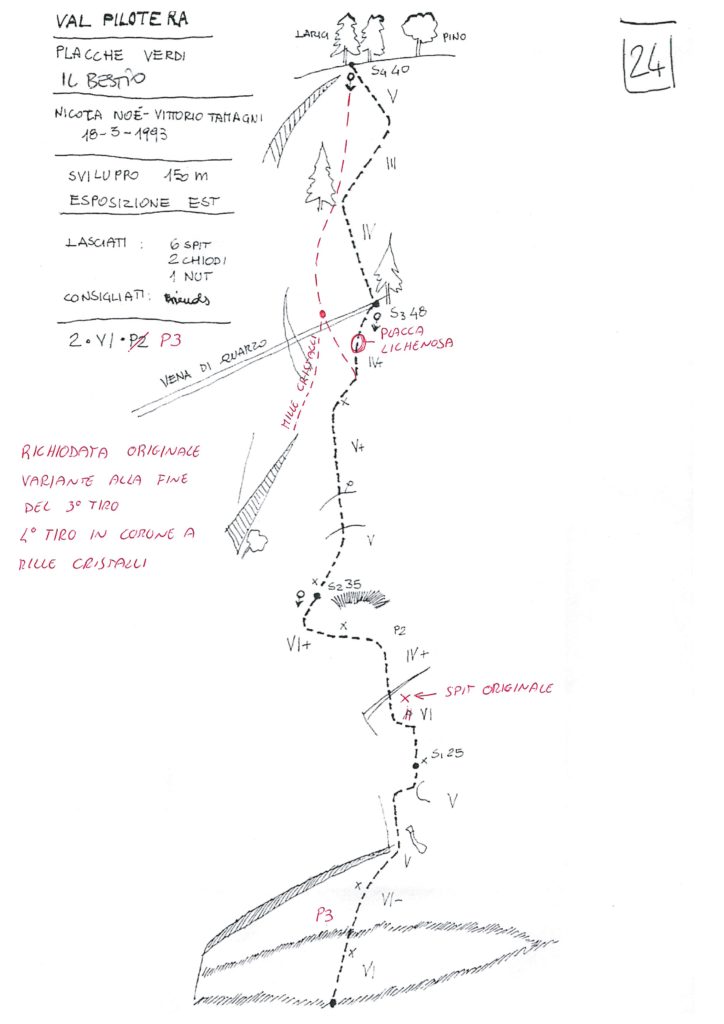 VAL PILOTERA
PLACCHE VERDI
IL BESTIO
NICOLA NOÉ - VITTORIO TAMAGNI
18-5-1993
SVILUPPO 150 m
ESPOSIZIONE EST
LASCIATI : 6 SPIT
2 CHIODI
1 NUT
CONSIGLIATI: friends
2 • VI • P2 P3
24
LARICI
PINO
S4 40
V
III
IV
S3 48
PLACCA
LICHENOSA
IV+
VENA DI QUARZO
MILLE CRISTALLI
V+
RICHIODATA ORIGINALE
VARIANTE ALLA FINE
DEL 3° TIRO
4° TIRO IN COMUNE A
MILLE CRISTALLI
V
S2 35
VI+
P2
IV+
SPIT ORIGINALE
VI
S1 25
V
V
VI-
P3
VI